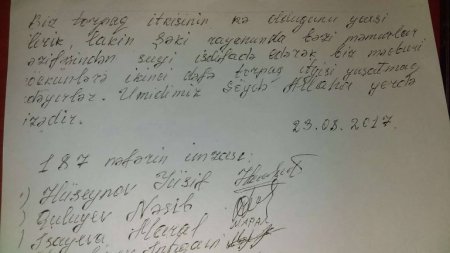 Biz torpaq itkisinin nə olduğunu yaxşı
bilirik, lakin Şəki rayonunda bəzi məmurlar
vəzifəsindən suyi isdifadə edərək, biz məcburi
köckünlərə ikinci dəfə torpaq itgisi yaşatmaq
isdəyirlər. Ümidimiz Göydə Allaha yerdə
sizədir.
23.08.2017.
187 nəfərin imzası:
1) Hüseynov Yusif
) Quluyev Nəsib
) İsayeva Maral MARAL